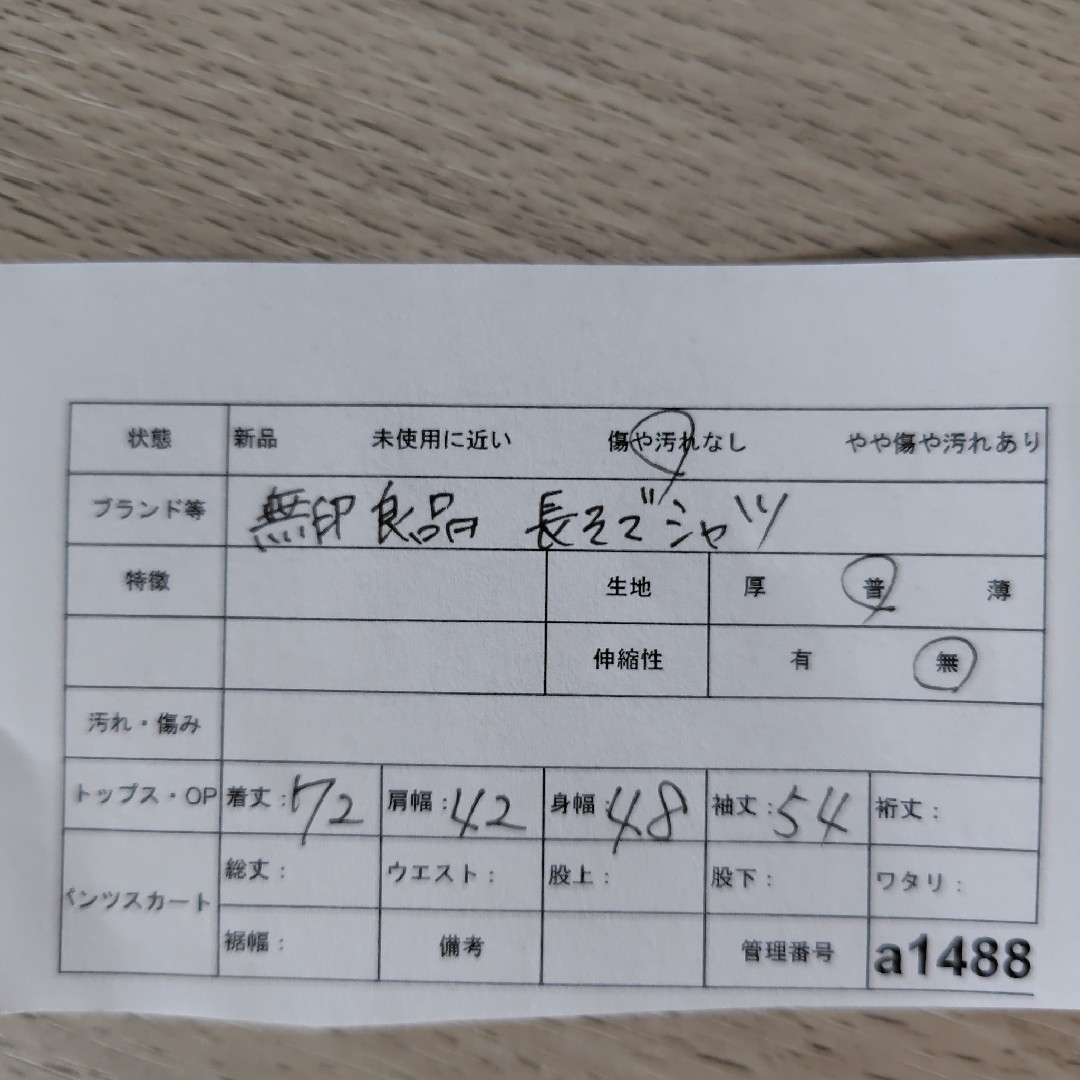 状態 新品 未使用に近い 傷や汚れなし やや傷や汚れあり
ブランド等 無印良品 長そでシャツ
特徴 生地 厚 普 薄
伸縮性 有 無
汚れ・傷み
トップス・OP 着丈:72 肩幅:42 身幅:48 袖丈:54 裄丈:
パンツスカート 総丈: ウエスト: 股上: 股下: ワタリ:
裾幅: 備考 管理番号 a1488